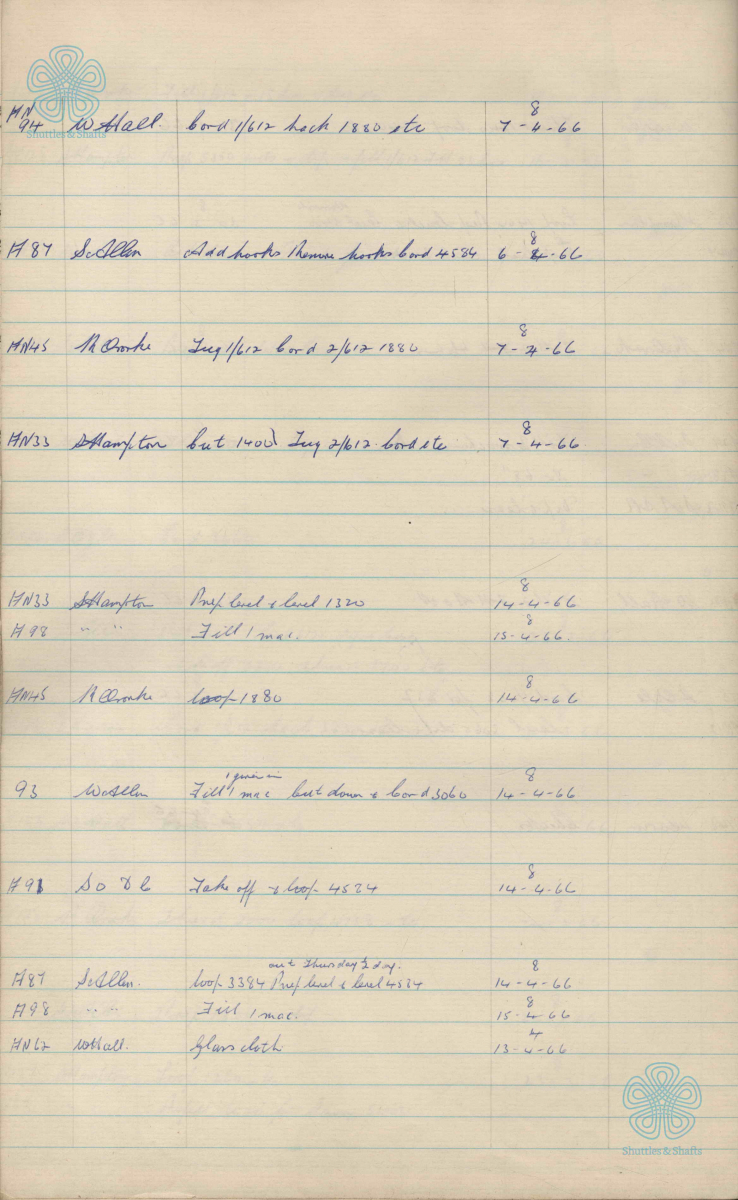 8
HN
94 W Hall. Cord 1/612 hack 1880 etc 7-4-66
Shuttles & Shafts
8
H 87 S. Allen Add hooks Remove hooks Cord 4584 6-4-66
8
HN45 R ORorke Tug 1/612 Cord 2/612 1880 7-4-66
8
HN33 S Hampton Cut 1400 Tug 2/612 Cord etc 7-4-66
8
HN33 S Hampton Prep level & level 1320 14-4-66
8
H 98 " " Fill 1 mac. 15-4-66.
8
HN45 R ORorke Loop 1880 14-4-66
1 given in 8
93 W Allen Fill 1 mac Cut down & Cord 3060 14-4-66
8
H 91 S O & C Take off & loop 4584 14-4-66
out Thursday ½ day. 8
H 87 S. Allen. Loop 3384 Prep level & level 4584 14-4-66
8
H 98 " " Fill 1 mac. 15-4-66
4
HN62 W Hall. Glass cloth 13-4-66
Shuttles & Shafts